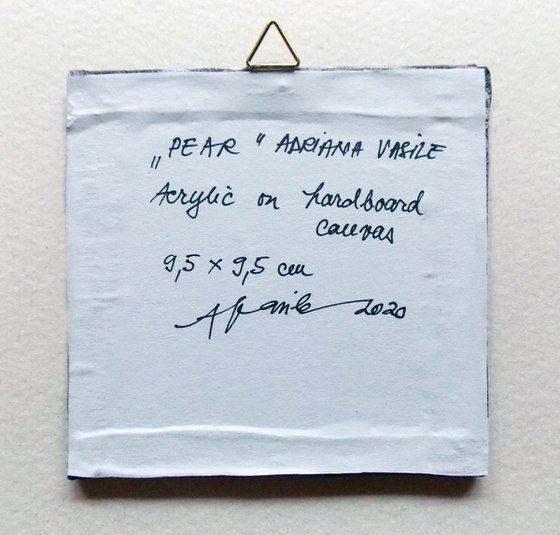 „PEAR" ADRIANA VASILE
Acrylic on hardboard
canvas
9,5 x 9,5 cm
AVasile 2020